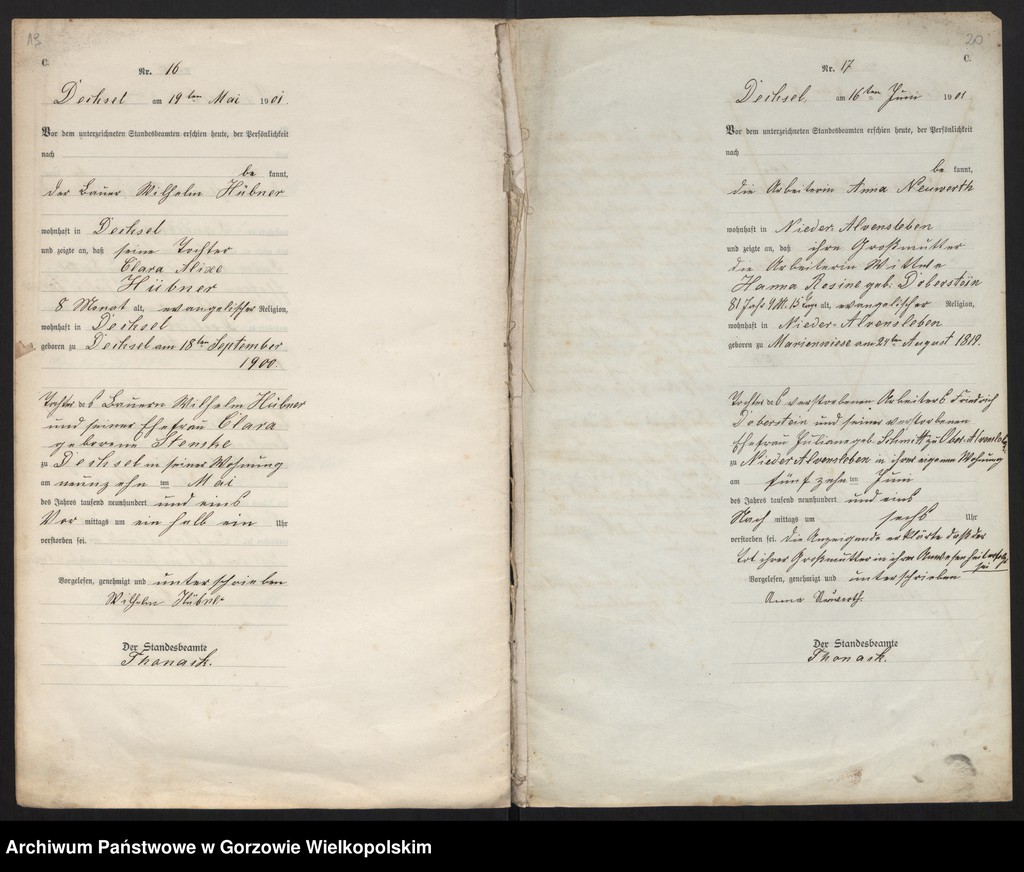 19
C.
Nr. 16
Dechsel am 19ten Mai 1901.
Vor dem unterzeichneten Standesbeamten erschien heute, der Persönlichkeit
nach
be kannt,
der Bauer Wilhelm Hübner
wohnhaft in Dechsel
und zeigte an, daß seine Tochter
Clara Alixe
Hübner
8 Monat alt, evangelischer Religion,
wohnhaft in Dechsel
geboren zu Dechsel am 18ten September
1900.
Tochter des Bauern Wilhelm Hübner
und seiner Ehefrau Clara
geborene
zu Dechsel in seiner Wohnung
am neunzehn ten Mai
des Jahres tausend neunhundert und eins
Vor mittags um ein halb ein Uhr
verstorben sei.
Vorgelesen, genehmigt und unterschrieben
Wilhelm Hübner
Der Standesbeamte
Thonack.
20
C.
Nr. 17
Dechsel, am 16ten Juni 1901
Vor dem unterzeichneten Standesbeamten erschien heute, der Persönlichkeit
nach
be kannt,
die Arbeiterin Anna Neuwerth
wohnhaft in Nieder Alvensleben
und zeigte an, daß ihre Großmutter
die Arbeiterin Wittwe
Hanna Rosine geb: Doberstein
81 Jahr 9 M. 15 Tage alt, evangelischer Religion,
wohnhaft in Nieder-Alvensleben
geboren zu Marienwiese am August 1819.
Tochter des verstorbenen Arbeiters Friedrich
Doberstein und seiner verstorbenen
Ehefrau Juliane geb: Schmitt zu Ober-
zu Nieder Alvensleben in ihrer eigenen Wohnung
am fünfzehn ten Juni
des Jahres tausend neunhundert und eins
Nach mittags um sechs Uhr
verstorben sei. Die Anzeigende erklärte daß der
Tot ihrer Großmutter in ihrer Anwesenheit erfolgt
sei
Vorgelesen, genehmigt und unterschrieben
Anna Neuwerth.
Der Standesbeamte
Thonack.
Archiwum Państwowe w Gorzowie Wielkopolskim